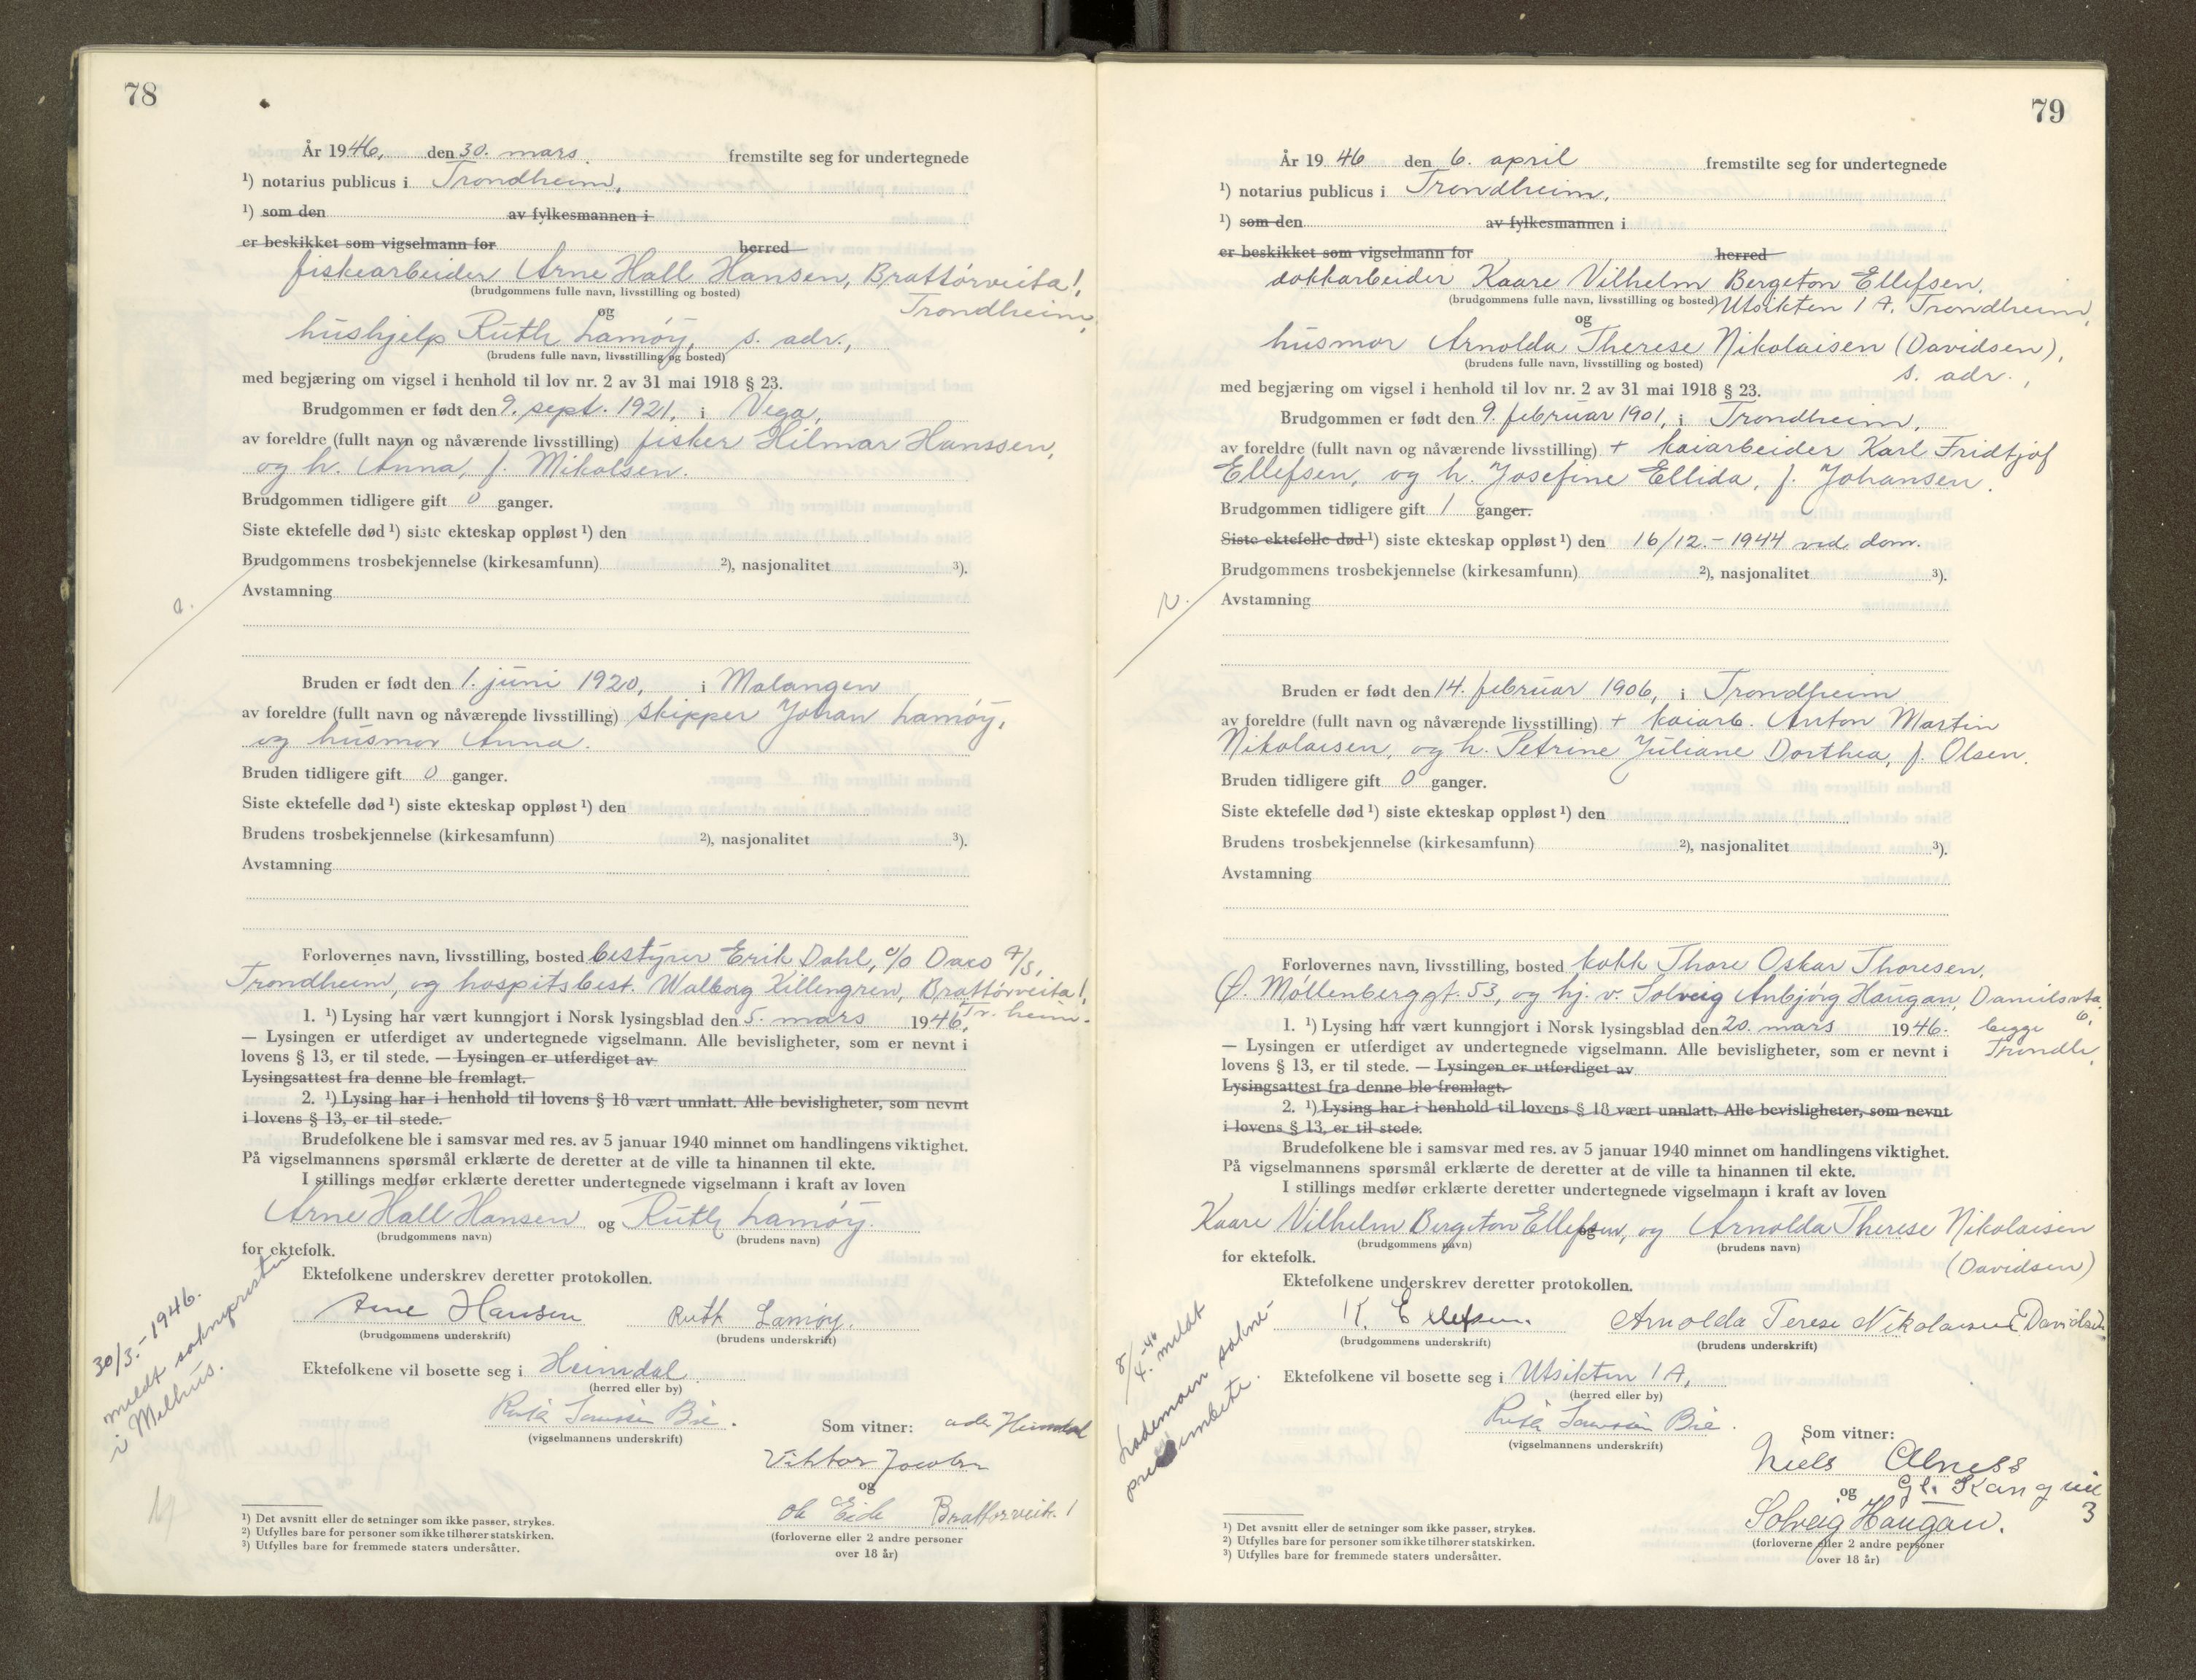 78
År 1946, den 30. mars. fremstilte seg for undertegnede
¹) notarius publicus i Trondheim,
¹) som den av fylkesmannen i
er beskikket som vigselmann for herred
fiskearbeider Arne Hall Hansen, Brattørveita 1,
(brudgommens fulle navn, livsstilling og bosted)
Trondheim,
og
hushjelp Ruth Lamøy, s. adr.,
(brudens fulle navn, livsstilling og bosted)
med begjæring om vigsel i henhold til lov nr. 2 av 31 mai 1918 § 23.
Brudgommen er født den 9. sept. 1921, i Vega,
av foreldre (fullt navn og nåværende livsstilling) fisker Hilmar Hanssen,
og h. Anna, f. Mikalsen.
Brudgommen tidligere gift 0 ganger.
Siste ektefelle død ¹) siste ekteskap oppløst ¹) den
Brudgommens trosbekjennelse (kirkesamfunn) ²), nasjonalitet ³).
Avstamning
Bruden er født den 1. juni 1920, i Malangen
av foreldre (fullt navn og nåværende livsstilling) skipper Johan Lamøy,
og husmor Anna.
Bruden tidligere gift 0 ganger.
Siste ektefelle død ¹) siste ekteskap oppløst ¹) den
Brudens trosbekjennelse (kirkesamfunn) ²), nasjonalitet ³).
Avstamning
Forlovernes navn, livsstilling, bosted bestyrer Erik Dahl, c/o Daco A/S,
Trondheim, og hospitsbest. Walborg Killengren, Brattørveita 1,
Tr.heim.
1. ¹) Lysing har vært kunngjort i Norsk lysingsblad den 5. mars 1946,
— Lysingen er utferdiget av undertegnede vigselmann. Alle bevisligheter, som er nevnt i
lovens § 13, er til stede. — Lysingen er utferdiget av
Lysingsattest fra denne ble fremlagt.
2. ¹) Lysing har i henhold til lovens § 18 vært unnlatt. Alle bevisligheter, som nevnt
i lovens § 13, er til stede.
Brudefolkene ble i samsvar med res. av 5 januar 1940 minnet om handlingens viktighet.
På vigselmannens spørsmål erklærte de deretter at de ville ta hinannen til ekte.
I stillings medfør erklærte deretter undertegnede vigselmann i kraft av loven
Arne Hall Hansen og Ruth Lamøy.
(brudgommens navn) (brudens navn)
for ektefolk.
Ektefolkene underskrev deretter protokollen.
Arne Hansen Ruth Lamøy.
(brudgommens underskrift) (brudens underskrift)
30/3.-1946.
meldt soknepresten
i Melhus.
Ektefolkene vil bosette seg i Heimdal
(herred eller by)
Bie.
(vigselmannens underskrift)
Som vitner: adr Heimdal
Viktor Jacobsen
og
Ole Eide Brattørveit. 1
(forloverne eller 2 andre personer
over 18 år)
¹) Det avsnitt eller de setninger som ikke passer, strykes.
²) Utfylles bare for personer som ikke tilhører statskirken.
³) Utfylles bare for fremmede staters undersåtter.
79
År 1946 den 6. april fremstilte seg for undertegnede
¹) notarius publicus i Trondheim,
¹) som den av fylkesmannen i
er beskikket som vigselmann for herred
dokkarbeider Kaare Vilhelm Bergeton Ellefsen,
(brudgommens fulle navn, livsstilling og bosted) Utsikten 1 A, Trondheim,
og
husmor Arnolda Therese Nikolaisen (Davidsen),
(brudens fulle navn, livsstilling og bosted)
s. adr.,
med begjæring om vigsel i henhold til lov nr. 2 av 31 mai 1918 § 23.
Brudgommen er født den 9. februar 1901, i Trondheim,
av foreldre (fullt navn og nåværende livsstilling) + kaiarbeider Karl Fridtjof
Ellefsen, og h. Josefine Ellida, f. Johansen.
Brudgommen tidligere gift 1 ganger.
Siste ektefelle død ¹) siste ekteskap oppløst ¹) den 16/12.-1944 ved dom.
Brudgommens trosbekjennelse (kirkesamfunn) ²), nasjonalitet ³).
Avstamning
Bruden er født den 14. februar 1906, i Trondheim
av foreldre (fullt navn og nåværende livsstilling) + kaiarb. Anton Martin
Nikolaisen, og h. Petrine Juliane Dorthea, f. Olsen.
Bruden tidligere gift 0 ganger.
Siste ektefelle død ¹) siste ekteskap oppløst ¹) den
Brudens trosbekjennelse (kirkesamfunn) ²), nasjonalitet ³).
Avstamning
Forlovernes navn, livsstilling, bosted kokk Thore Oskar Thoresen,
Ø. Møllenberggt. 53, og hj. v. Solveig Anbjørg Haugan, Danielsvta.
6,
begge
Trondh.
1. ¹) Lysing har vært kunngjort i Norsk lysingsblad den 20. mars 1946.
— Lysingen er utferdiget av undertegnede vigselmann. Alle bevisligheter, som er nevnt i
lovens § 13, er til stede. — Lysingen er utferdiget av
Lysingsattest fra denne ble fremlagt.
2. ¹) Lysing har i henhold til lovens § 18 vært unnlatt. Alle bevisligheter, som nevnt
i lovens § 13, er til stede.
Brudefolkene ble i samsvar med res. av 5 januar 1940 minnet om handlingens viktighet.
På vigselmannens spørsmål erklærte de deretter at de ville ta hinannen til ekte.
I stillings medfør erklærte deretter undertegnede vigselmann i kraft av loven
Kaare Vilhelm Bergeton Ellefsen, og Arnolda Therese Nikolaisen
(brudgommens navn) og (brudens navn)
(Davidsen)
for ektefolk.
Ektefolkene underskrev deretter protokollen.
K. Ellefsen. Arnolda Terese Nikolaisen (Davidsen
(brudgommens underskrift) (brudens underskrift)
8/4.-46 meldt
Lademoen sokne-
prestembete.
Ektefolkene vil bosette seg i Utsikten 1 A,
(herred eller by)
Bie.
(vigselmannens underskrift)
Som vitner:
Niels Alness
og Gl. Kongvei
3
Solveig Haugan.
(forloverne eller 2 andre personer
over 18 år)
¹) Det avsnitt eller de setninger som ikke passer, strykes.
²) Utfylles bare for personer som ikke tilhører statskirken.
³) Utfylles bare for fremmede staters undersåtter.